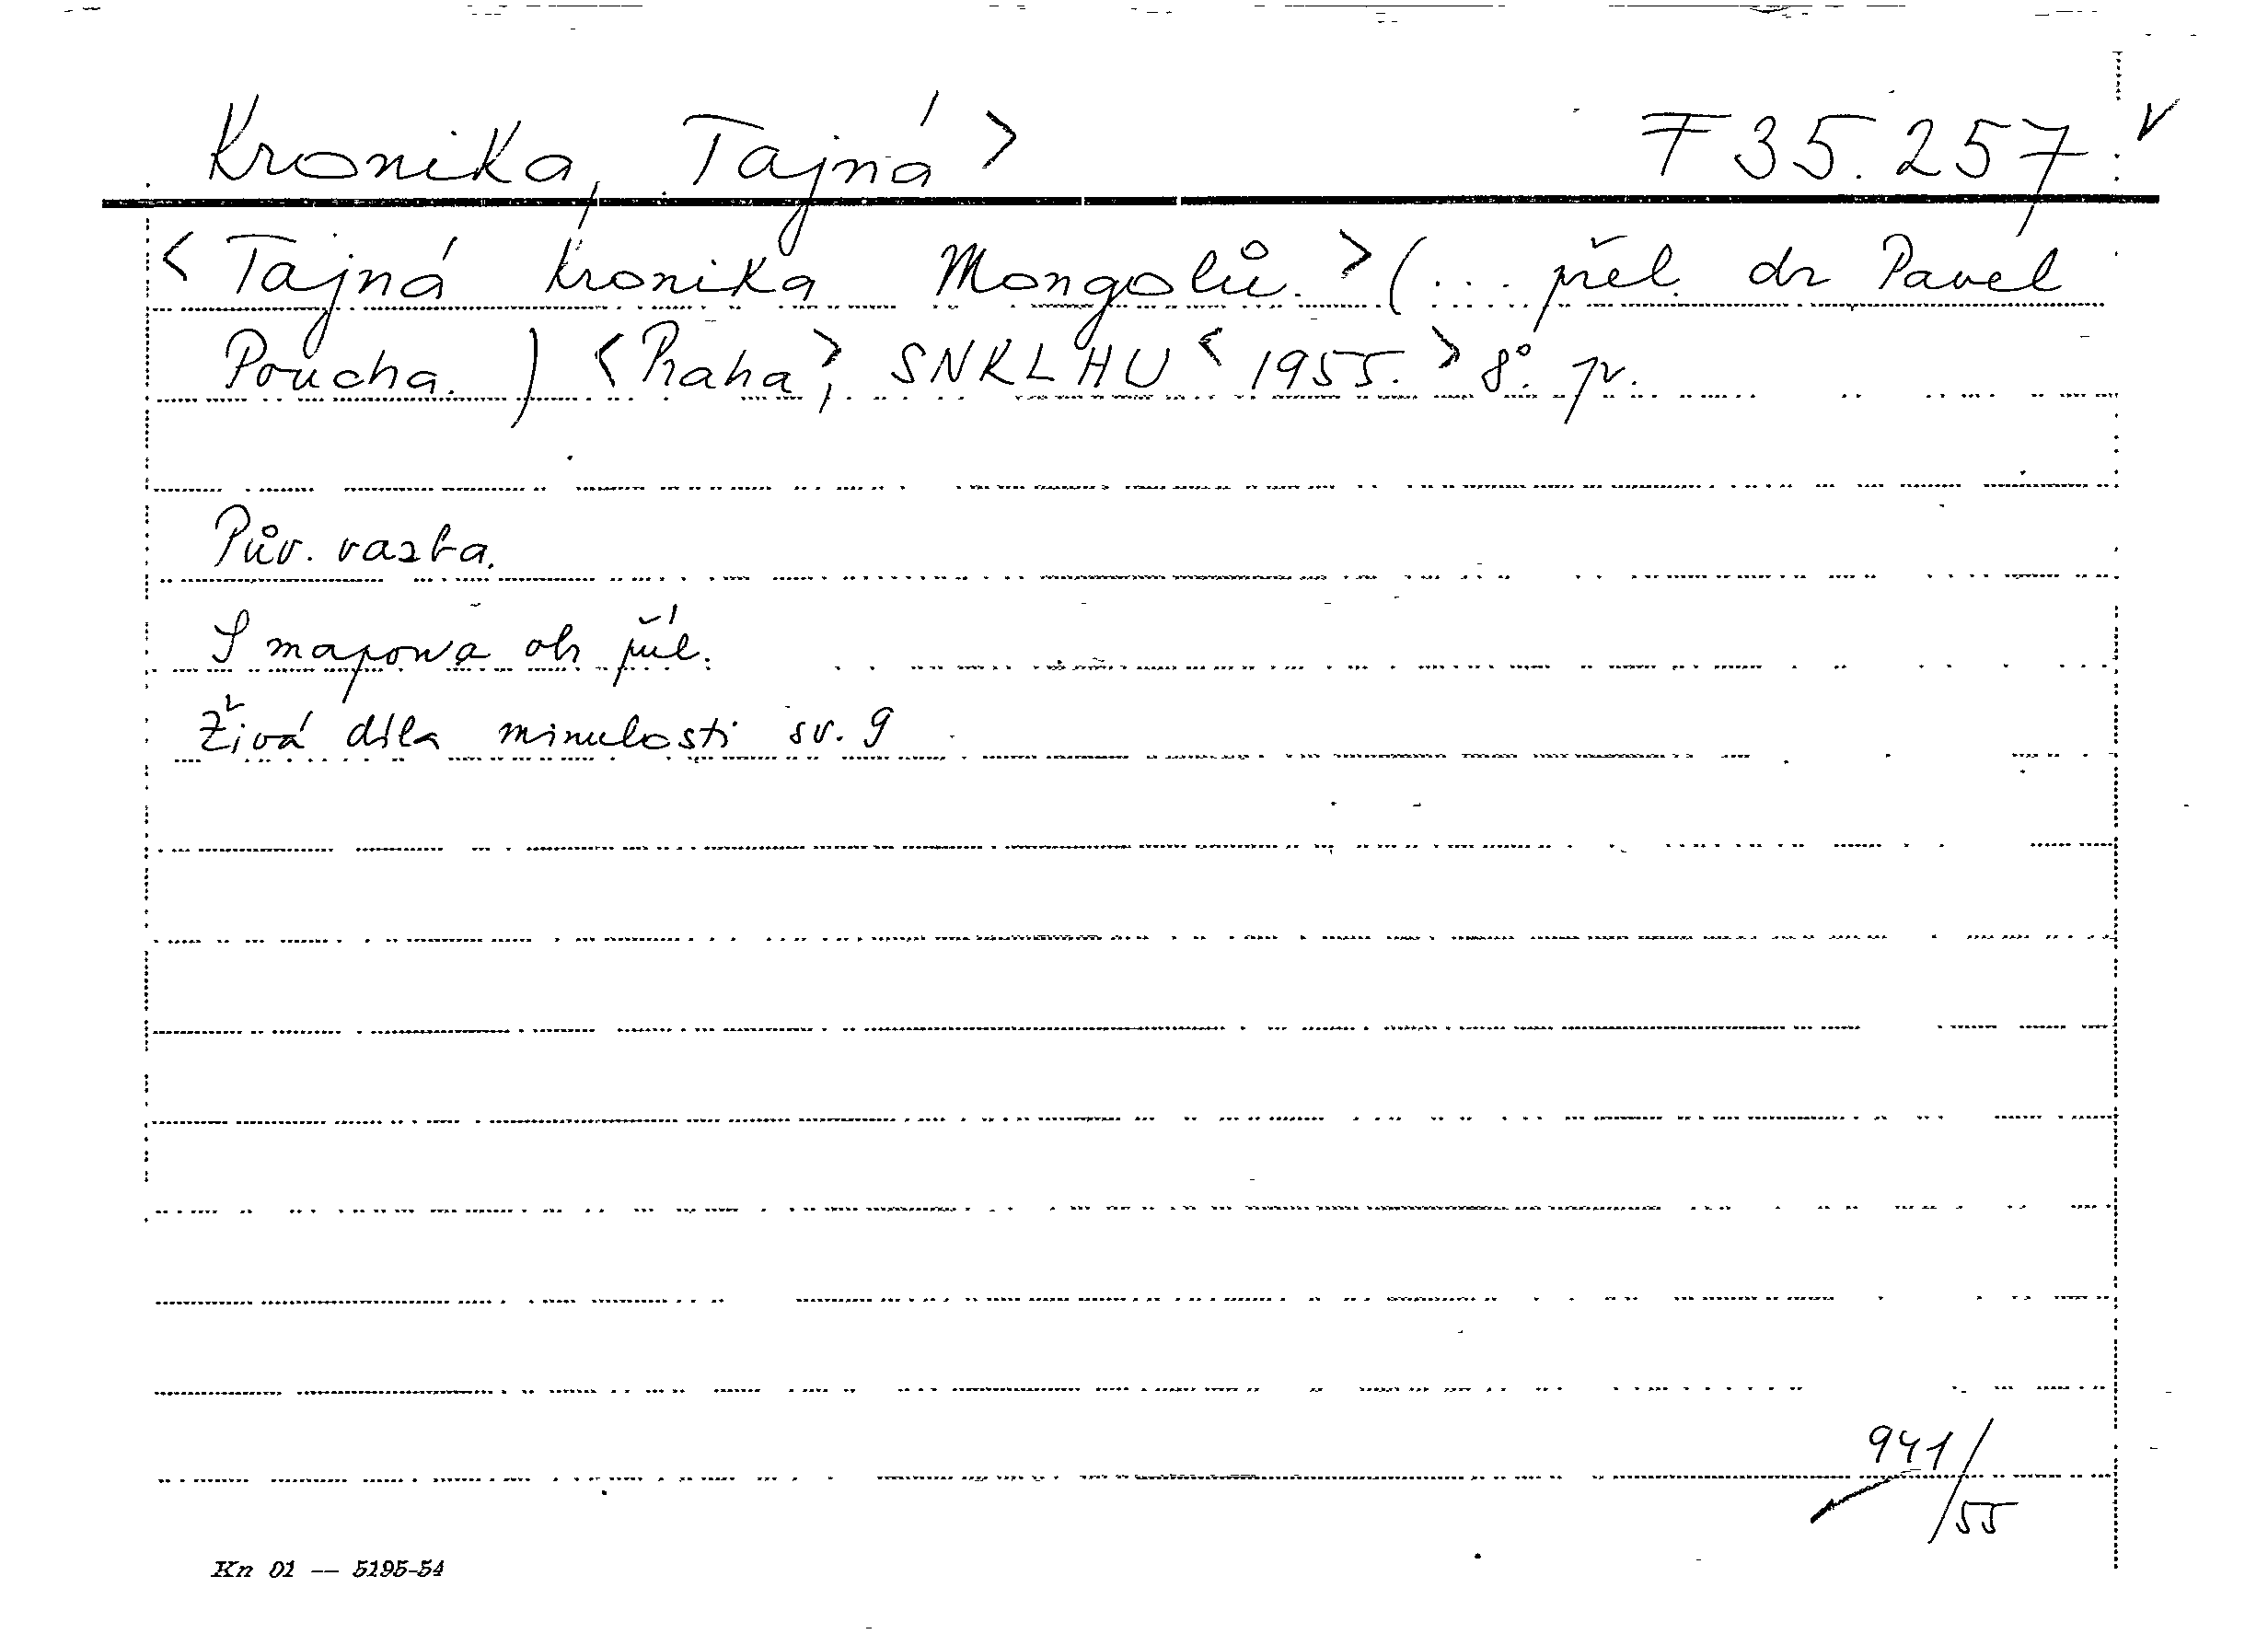 Kronika, Tajná > F 35.257.
< Tajná kronika Mongolů. > (... přel. dr Pavel
Poucha. ) < Praha >, SNKLHU < 1955. > 8°. pv.
Pův. vazba.
S mapou a obr příl.
Živá díla minulosti sv. 9
941/55
Kn 01 — 5195-54